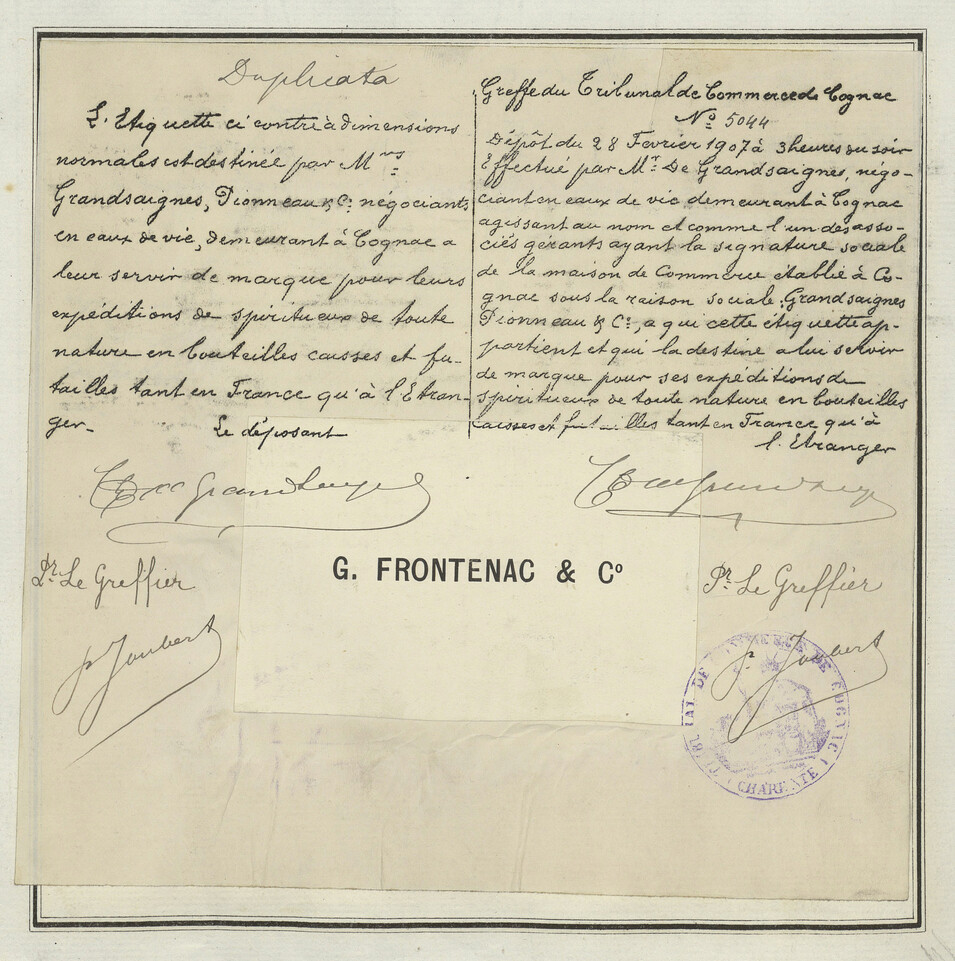 Duplicata
L'Etiquette ci contre à dimensions
normales est destinée par Mrs
Grandsaignes, Pionneau & Cie négociants
en eaux de vie, demeurant à Cognac a
leur servir de marque pour leurs
expéditions de spiritueux de toute
nature en bouteilles caisses et fu-
tailles tant en France qu'à l'Etran-
ger.
Le déposant
Pr. Le Greffier
Joubert
Greffe du Tribunal de Commerce de Cognac
No 5044
Dépôt du 28 Février 1907 à 3 heures du soir
Effectué par Mr. De Grandsaignes, négo-
ciant en eaux de vie demeurant à Cognac
agissant au nom et comme l'un des asso-
ciés gérants ayant la signature sociale
de la maison de Commerce établie à Co-
gnac sous la raison sociale: Grandsaignes
Pionneau & Cie, a qui cette étiquette ap-
partient et qui la destine a lui servir
de marque pour ses expéditions de
spiritueux de toute nature en bouteilles
caisses et futailles tant en France qu'à
l'Etranger
G. FRONTENAC & Co
Pr. Le Greffier
Joubert
TRIBUNAL DE COMMERCE DE COGNAC
CHARENTE